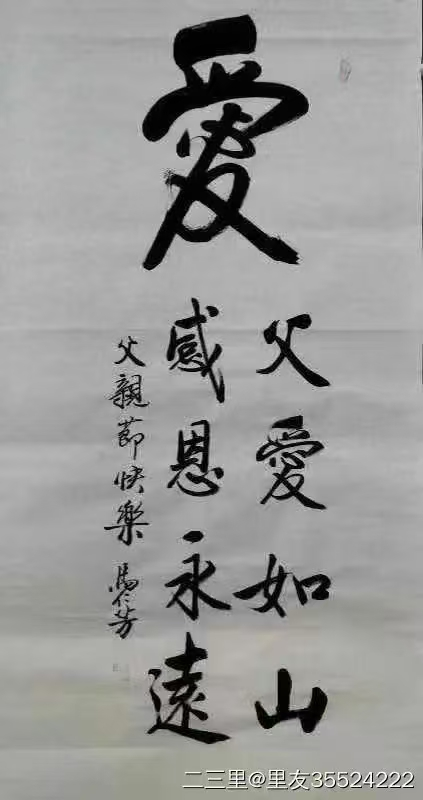 愛
父愛如山
感恩永遠
父親節快樂 馮仁芳
二三里@里友35524222